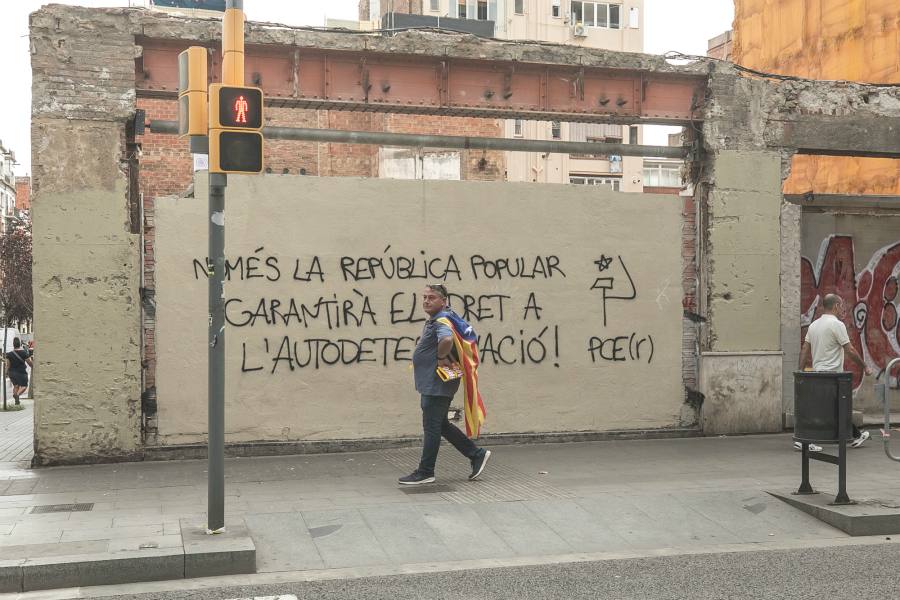 NOMÉS LA REPÚBLICA POPULAR
GARANTIRÀ EL DRET A
L'AUTODETE NACIÓ! PCE(r)